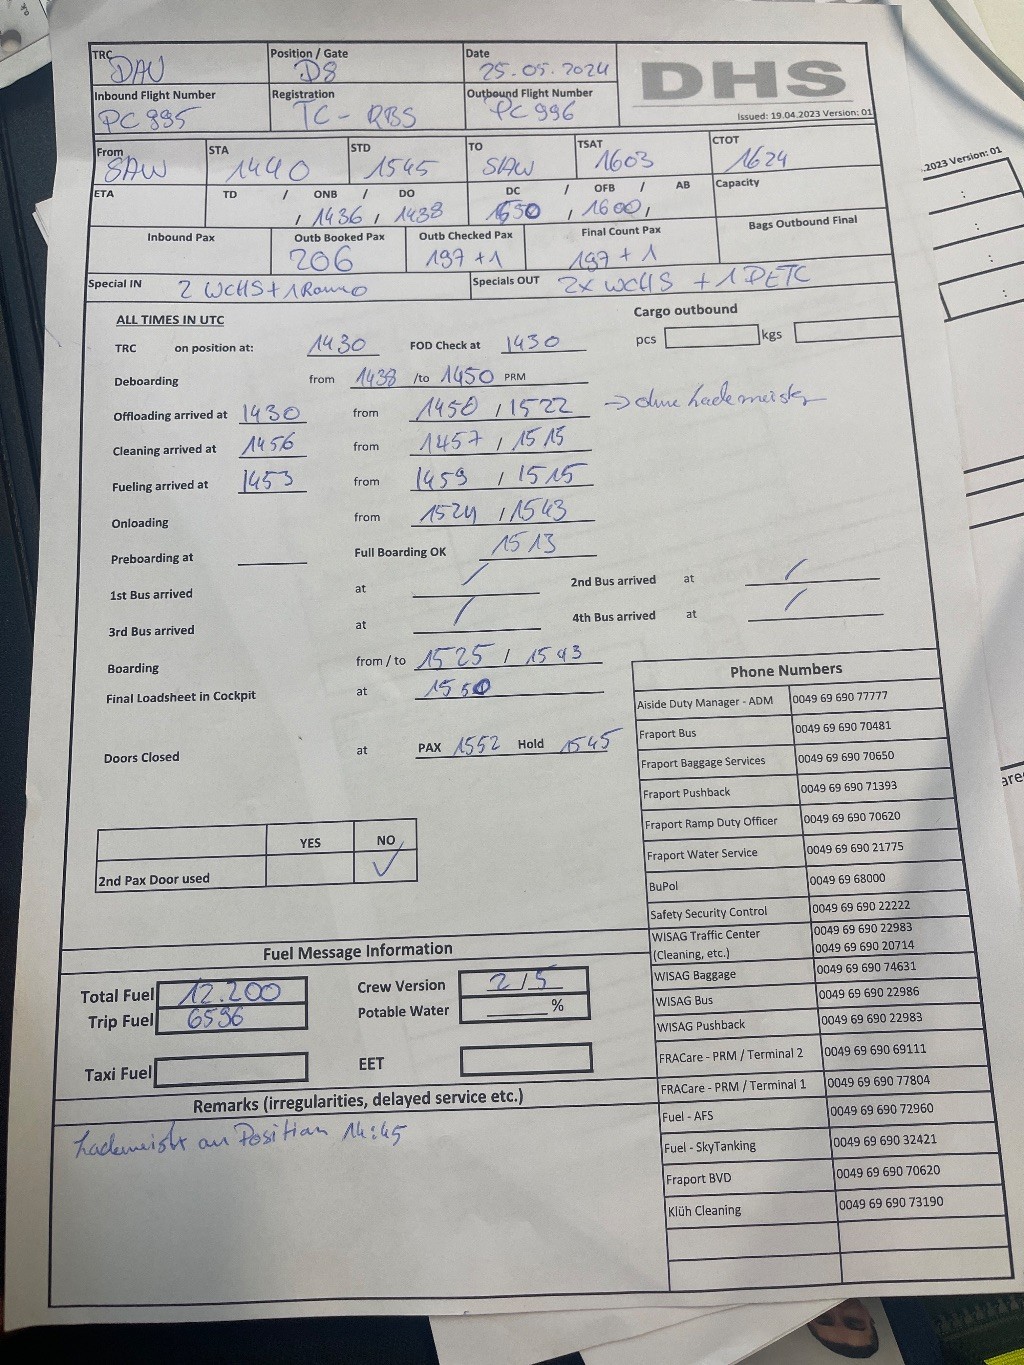 TRC DAU Position / Gate D8 Date 25.05.2024 DHS
Inbound Flight Number PC 995 Registration TC-RBS Outbound Flight Number PC 996 Issued: 19.04.2023 Version: 01
From SAW STA 1440 STD 1545 TO SAW TSAT 1603 CTOT 1624
ETA TD / ONB / DO / 1436 / 1438 DC / OFB / AB 1550 / 1600 / Capacity
Inbound Pax Outb Booked Pax 206 Outb Checked Pax 197 +1 Final Count Pax 197 + 1 Bags Outbound Final
Special IN 2 WCHS + 1 Specials OUT 2x WCHS + 1 PETC
ALL TIMES IN UTC Cargo outbound
TRC on position at: 1430 FOD Check at 1430 pcs kgs
Deboarding from 1438 /to 1450 PRM
Offloading arrived at 1430 from 1450 / 1522 → ohne Lademeister
Cleaning arrived at 1456 from 1457 / 1515
Fueling arrived at 1453 from 1459 / 1515
Onloading from 1524 / 1543
Preboarding at Full Boarding OK 1513
1st Bus arrived at / 2nd Bus arrived at /
3rd Bus arrived at / 4th Bus arrived at /
Boarding from / to 1525 / 1543
Final Loadsheet in Cockpit at 1550
Doors Closed at PAX 1552 Hold 1545
YES NO
2nd Pax Door used ✓
Fuel Message Information
Total Fuel 12.200 Crew Version 2/5
Trip Fuel 6596 Potable Water %
Taxi Fuel EET
Remarks (irregularities, delayed service etc.)
Lademeister an Position 14:45
Phone Numbers
Aiside Duty Manager - ADM 0049 69 690 77777
Fraport Bus 0049 69 690 70481
Fraport Baggage Services 0049 69 690 70650
Fraport Pushback 0049 69 690 71393
Fraport Ramp Duty Officer 0049 69 690 70620
Fraport Water Service 0049 69 690 21775
BuPol 0049 69 68000
Safety Security Control 0049 69 690 22222
WISAG Traffic Center 0049 69 690 22983
(Cleaning, etc.) 0049 69 690 20714
WISAG Baggage 0049 69 690 74631
WISAG Bus 0049 69 690 22986
WISAG Pushback 0049 69 690 22983
FRACare - PRM / Terminal 2 0049 69 690 69111
FRACare - PRM / Terminal 1 0049 69 690 77804
Fuel - AFS 0049 69 690 72960
Fuel - SkyTanking 0049 69 690 32421
Fraport BVD 0049 69 690 70620
Klüh Cleaning 0049 69 690 73190
.2023 Version: 01